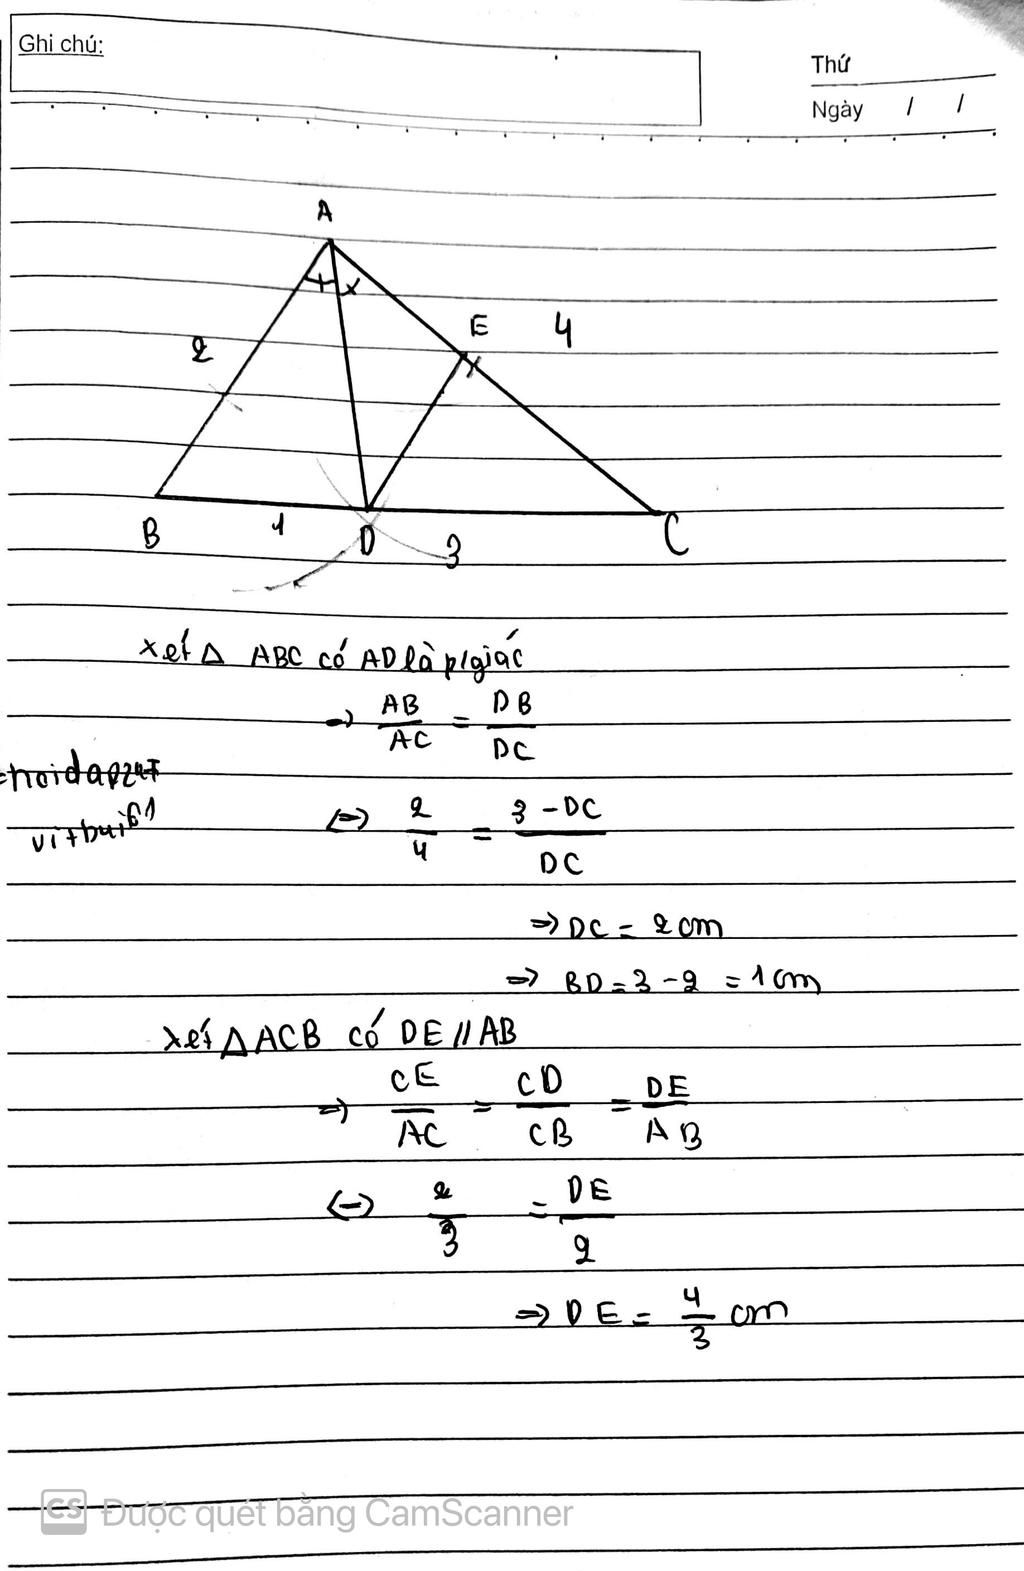 Ghi chú:
Thứ
Ngày / /
A
E
4
2
B
1
D
3
C
xét Δ ABC có AD là p/giác
=> AB/AC = DB/DC
<=> 2/4 = 3-DC/DC
=> DC = 2cm
=> BD = 3-2 = 1cm
xét ΔACB có DE // AB
=> CE/AC = CD/CB = DE/AB
<=> 2/3 = DE/2
=> DE = 4/3 cm
CS Được quét bằng CamScanner